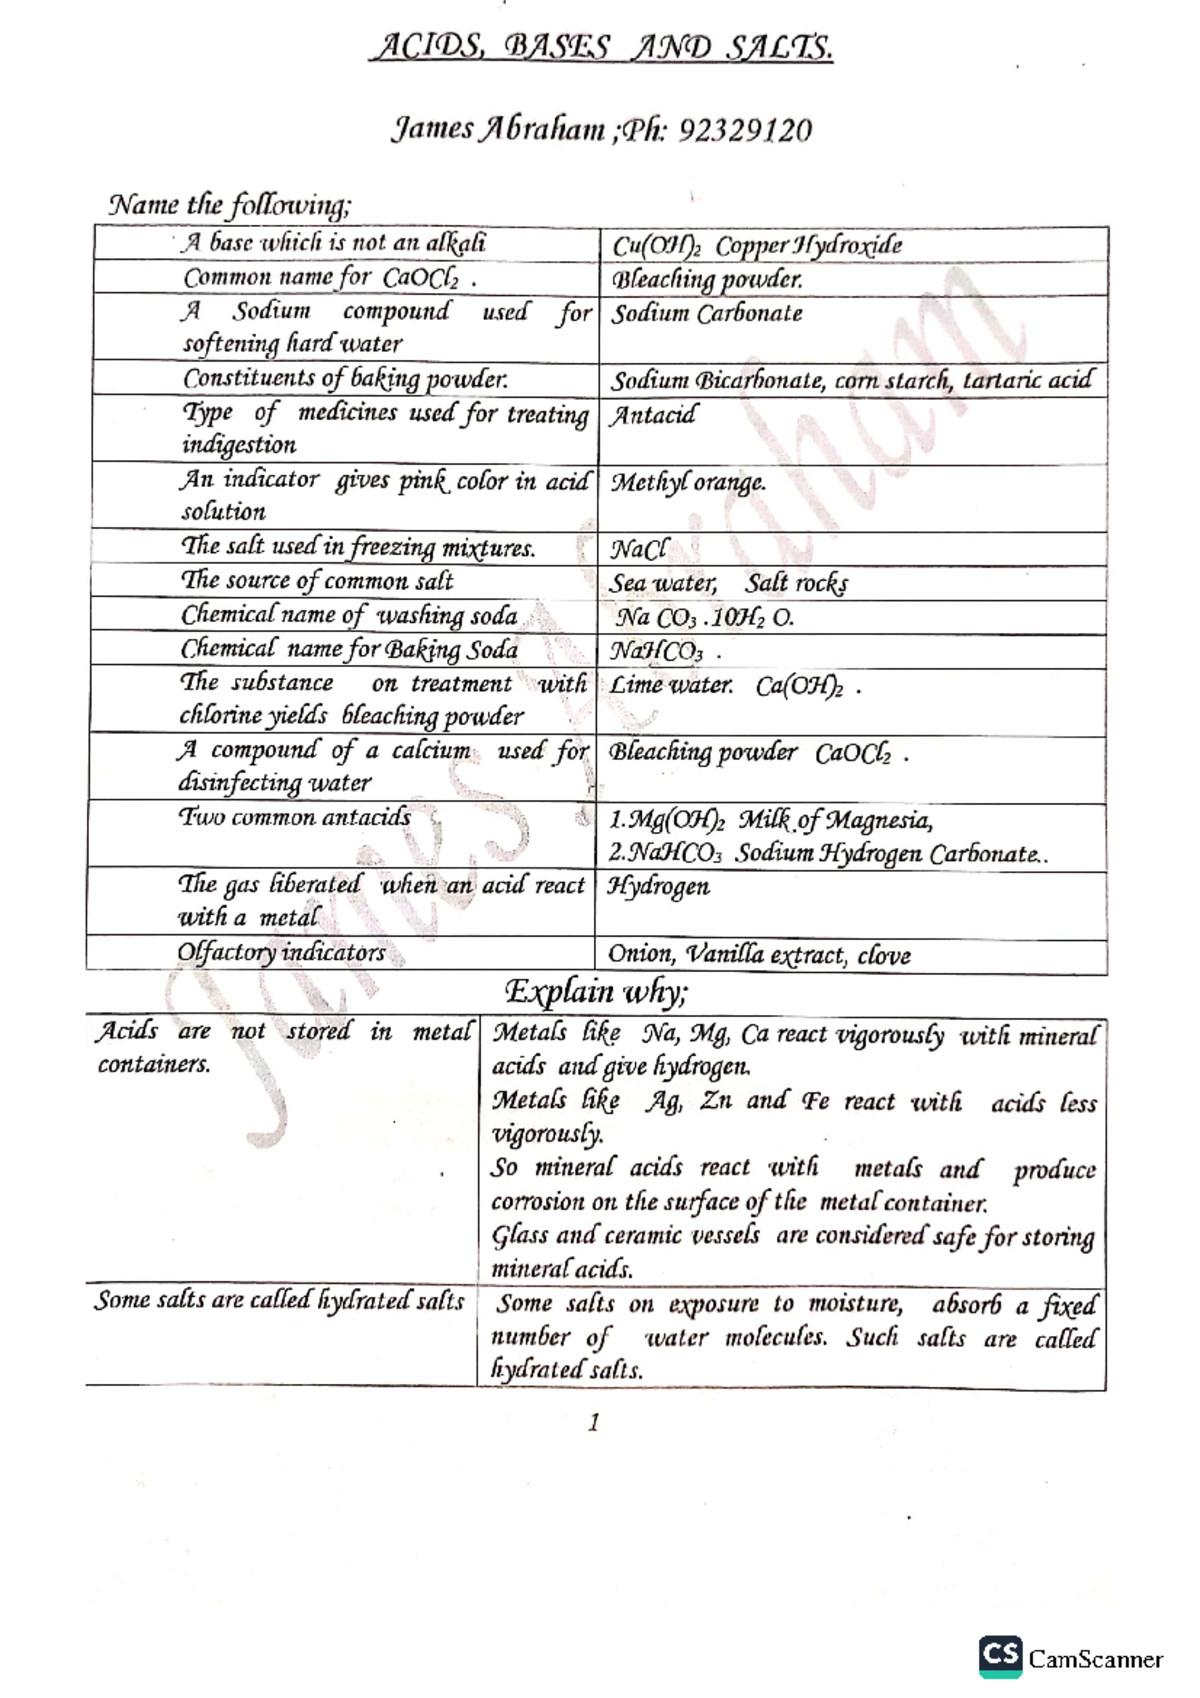 ACIDS, BASES AND SALTS.
James Abraham ;Ph: 92329120
Name the following;
A base which is not an alkali
Cu(OH)₂ Copper Hydroxide
Common name for CaOCl₂ .
Bleaching powder.
A Sodium compound used for
softening hard water
Sodium Carbonate
Constituents of baking powder.
Sodium Bicarbonate, corn starch, tartaric acid
Type of medicines used for treating
indigestion
Antacid
An indicator gives pink color in acid
solution
Methyl orange.
The salt used in freezing mixtures.
NaCl
The source of common salt
Sea water, Salt rocks
Chemical name of washing soda
Na CO₃ .10H₂ O.
Chemical name for Baking Soda
NaHCO₃ .
The substance on treatment with
chlorine yields bleaching powder
Lime water. Ca(OH)₂ .
A compound of a calcium used for
disinfecting water
Bleaching powder CaOCl₂ .
Two common antacids
1.Mg(OH)₂ Milk of Magnesia,
2.NaHCO₃ Sodium Hydrogen Carbonate..
The gas liberated when an acid react
with a metal
Hydrogen
Olfactory indicators
Onion, Vanilla extract, clove
Explain why;
Acids are not stored in metal
containers.
Metals like Na, Mg, Ca react vigorously with mineral
acids and give hydrogen.
Metals like Ag, Zn and Fe react with acids less
vigorously.
So mineral acids react with metals and produce
corrosion on the surface of the metal container.
Glass and ceramic vessels are considered safe for storing
mineral acids.
Some salts are called hydrated salts
Some salts on exposure to moisture, absorb a fixed
number of water molecules. Such salts are called
hydrated salts.
1
James Abraham
CS CamScanner